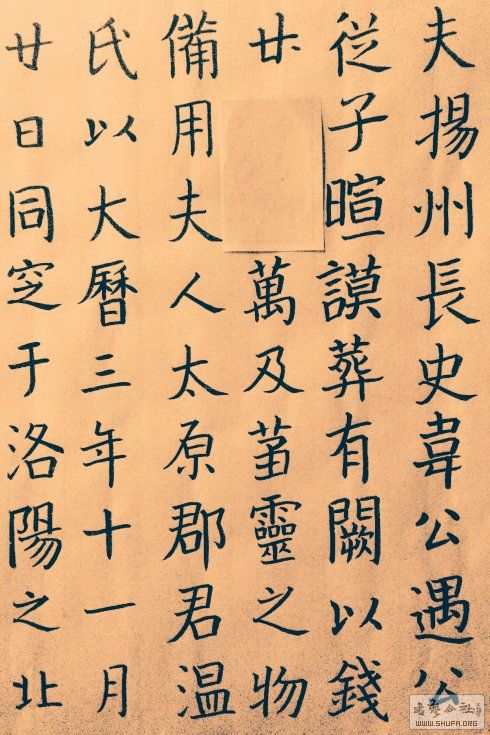 夫揚州長史韋公遇公
從子暄謨葬有闕以錢
廿萬及蒭靈之物
備用夫人太原郡君温
氏以大曆三年十一月
廿日同窆于洛陽之北
WWW.SHUFA.ORG